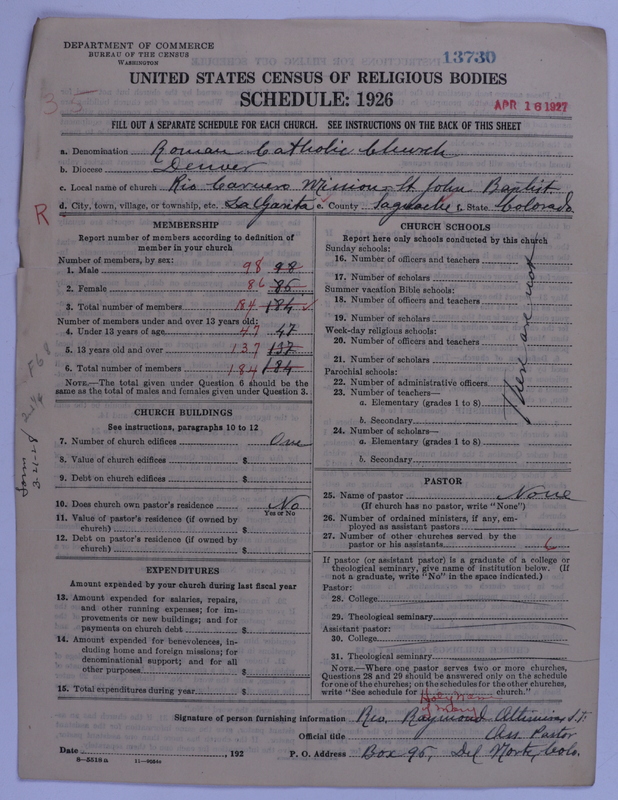 DEPARTMENT OF COMMERCE
BUREAU OF THE CENSUS
WASHINGTON
13730
UNITED STATES CENSUS OF RELIGIOUS BODIES
SCHEDULE: 1926
APR 16 1927
35
FILL OUT A SEPARATE SCHEDULE FOR EACH CHURCH. SEE INSTRUCTIONS ON THE BACK OF THIS SHEET
a. Denomination Roman Catholic Church
b. Diocese Denver
c. Local name of church Rio Carnero Mission, St. John Baptist
d. City, town, village, or township, etc. La Garita e. County Saguache f. State Colorado
R
MEMBERSHIP
Report number of members according to definition of member in your church
Number of members, by sex:
1. Male 98 98
2. Female 86 86
3. Total number of members 184 184
Number of members under and over 13 years old:
4. Under 13 years of age 47 47
5. 13 years old and over 137 137
6. Total number of members 184 184
NOTE.—The total given under Question 6 should be the same as the total of males and females given under Question 3.
CHURCH BUILDINGS
See instructions, paragraphs 10 to 12
7. Number of church edifices One
8. Value of church edifices $
9. Debt on church edifices $
10. Does church own pastor's residence No
Yes or No
11. Value of pastor's residence (if owned by church) $
12. Debt on pastor's residence (if owned by church) $
EXPENDITURES
Amount expended by your church during last fiscal year
13. Amount expended for salaries, repairs, and other running expenses; for improvements or new buildings; and for payments on church debt $
14. Amount expended for benevolences, including home and foreign missions; for denominational support; and for all other purposes $
15. Total expenditures during year $
CHURCH SCHOOLS
Report here only schools conducted by this church
Sunday schools:
16. Number of officers and teachers
17. Number of scholars
Summer vacation Bible schools:
18. Number of officers and teachers
19. Number of scholars
Week-day religious schools:
20. Number of officers and teachers
21. Number of scholars
Parochial schools:
22. Number of administrative officers
23. Number of teachers—
a. Elementary (grades 1 to 8)
b. Secondary
24. Number of scholars—
a. Elementary (grades 1 to 8)
b. Secondary
There are not
PASTOR
25. Name of pastor None
(If church has no pastor, write "None")
26. Number of ordained ministers, if any, employed as assistant pastors
27. Number of other churches served by the pastor or his assistants 6
If pastor (or assistant pastor) is a graduate of a college or theological seminary, give name of institution below. (If not a graduate, write "No" in the space indicated.)
Pastor:
28. College
29. Theological seminary
Assistant pastor:
30. College
31. Theological seminary
NOTE.—Where one pastor serves two or more churches, Questions 28 and 29 should be answered only on the schedule for one of the churches; on the schedules for the other churches, write "See schedule for Holy Name of Mary church."
Signature of person furnishing information Rev. Raymond
Official title Ass. Pastor
Date , 192
P. O. Address Box 95, Del Norte, Colo.
8—5518a 11—9054a
3-21-28